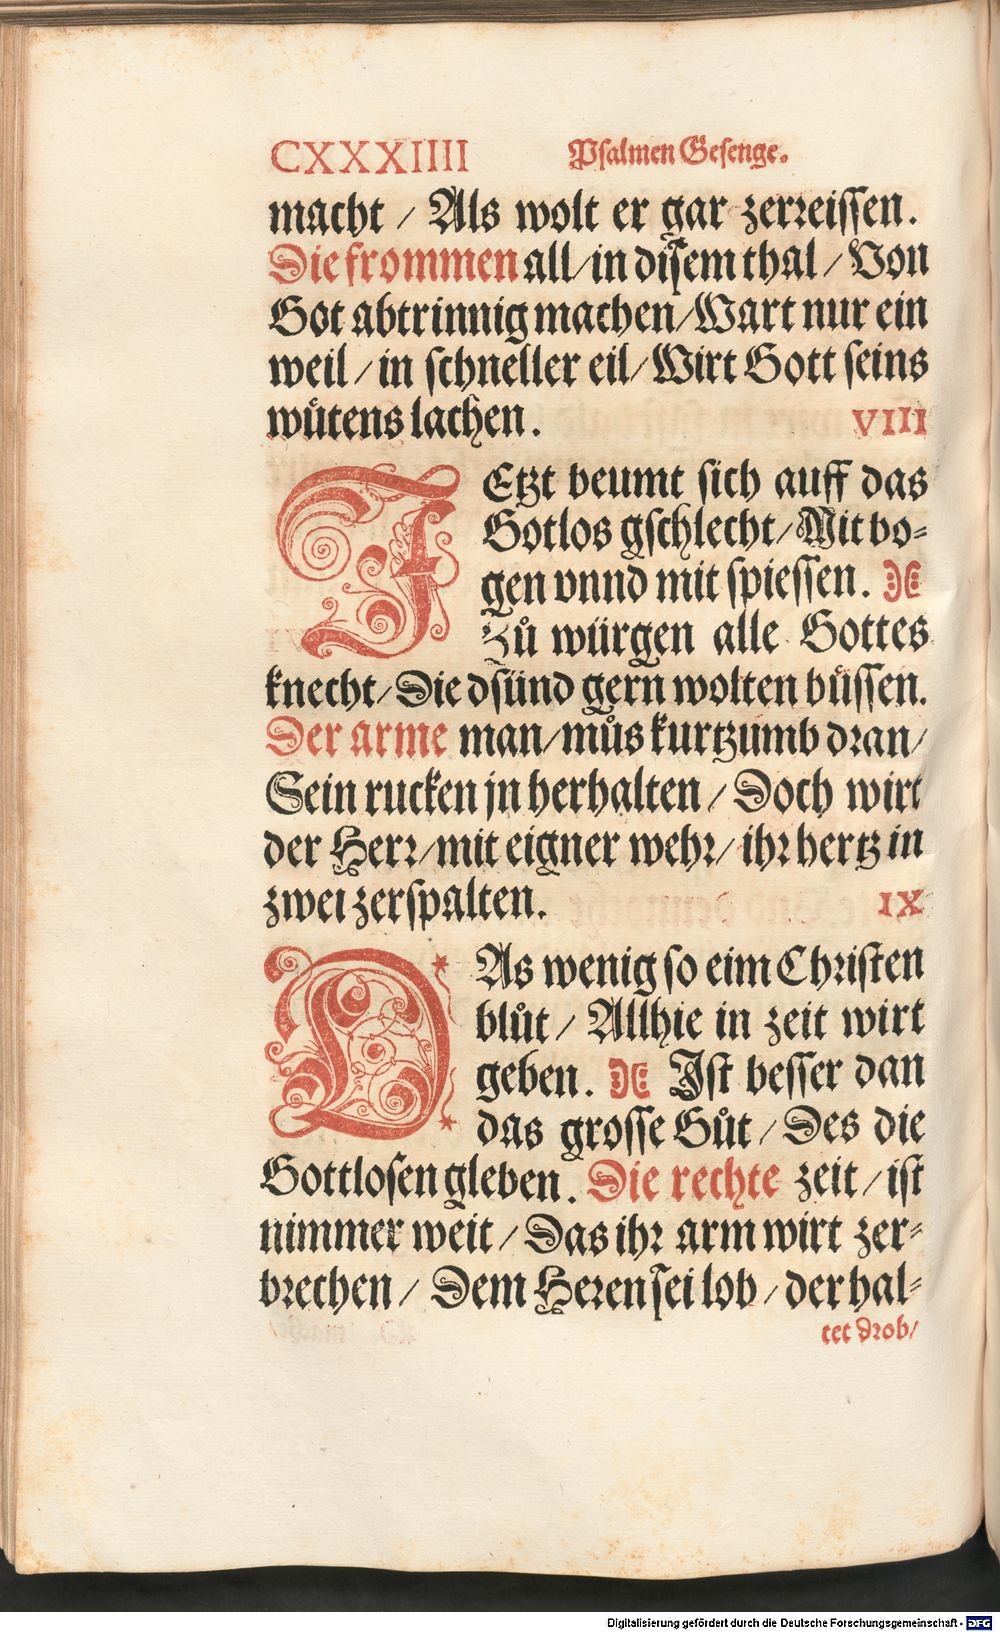 CXXXIIII Psalmen Gesenge.
macht / Als wolt er gar zerreissen.
Die frommen all/ in disem thal / Von
Got abtrinnig machen/ Wart nur ein
weil / in schneller eil/ Wirt Gott seins
wůtens lachen. VIII
IEtzt beumt sich auff das
Gotlos gschlecht/ Mit bo-
gen vnnd mit spiessen.
Zů würgen alle Gottes
knecht/ Die dsünd gern wolten bůssen.
Der arme man/ můs kurtzumb dran/
Sein rucken jn herhalten / Doch wirt
der Herr/ mit eigner wehr/ ihr hertz in
zwei zerspalten. IX
DAs wenig so eim Christen
blůt / Allhie in zeit wirt
geben. Ist besser dan
das grosse Gůt / Des die
Gottlosen gleben. Die rechte zeit / ist
nimmer weit / Das ihr arm wirt zer-
brechen / Dem Heren sei lob / der hal-
tet drob/
Digitalisierung gefördert durch die Deutsche Forschungsgemeinschaft - DFG